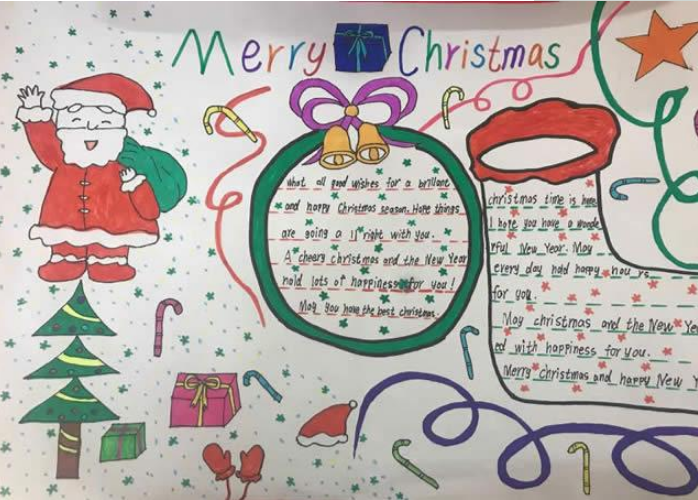 Merry Christmas
What all good wishes for a brillant
and happy Christmas season. Hope things
are going a ll right with you.
A cheers christmas and the New Year
hold lots of happiness for you!
May you have the best christmas.
christmas time is here
I hope you have a wonde
rful New Year. May
every day hold happy hou rs
for you.
May christmas and the New Ye
ed with happiness for you.
Merry Christmas and happy New Y